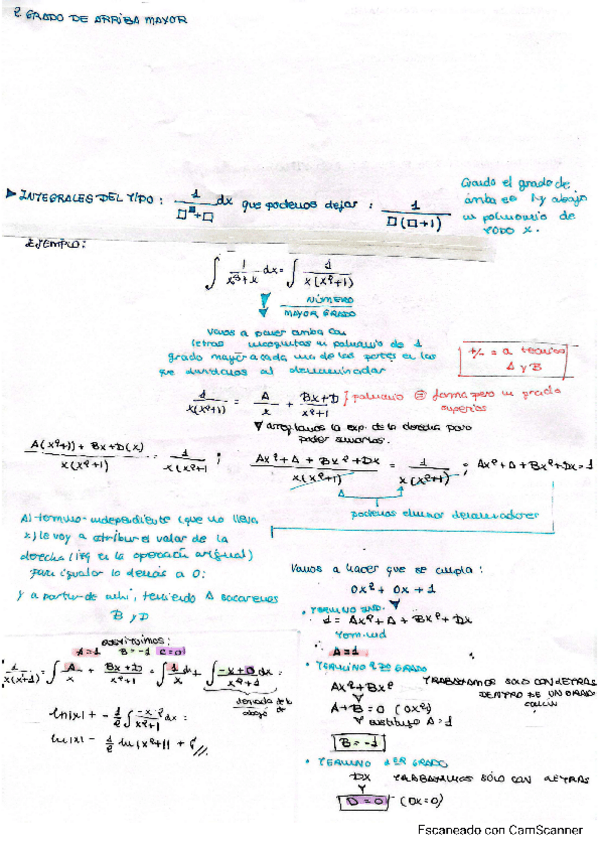 2 GRADO DE ARRIBA MAYOR
► INTEGRALES DEL TIPO: 1/(□^□+□) dx que podemos dejar: 1/(□(□+1))
Cuando el grado de
arriba es 1 y abajo
un polinomio de
TODO X.
EJEMPLO:
∫ 1/(x³+x) dx = ∫ 1/(x(x²+1))
NÚMERO
MAYOR GRADO
Vamos a poner arriba con
letras incognitas un polinomio de 1
grado mayor a cada una de las partes en las
que dividimos al denominador
+/- = a
A y B
1/(x(x²+1)) = A/x + (Bx+D)/(x²+1) } polinomio = forma pero un grado
superior
arreglamos la exp. de la derecha para
poder sumarlos.
(A(x²+1) + Bx+D(x))/(x(x²+1)) = 1/(x(x²+1 ; (Ax²+A+Bx²+Dx)/(x(x²+1)) = 1/(x(x²+1)) ; Ax²+A+Bx²+Dx=1
podemos eliminar denominadores
Al termino independiente (que no lleva
x) le voy a atribuir el valor de la
derecha (izq en la operación original)
para igualar lo demás a 0:
y a partir de ahí, teniendo A sacaremos
B y D
Vamos a hacer que se cumpla:
0x² + 0x + 1
• TERMINO IND.
1 = Ax² + A + Bx² + Dx
Term. ind
A=1
• TERMINO 2DO GRADO
Ax²+Bx² TRABAJAMOS SOLO CON LETRAS
DENTRO DE UN GRADO
A+B=0 (0x²)
sustituyo A=1
B=-1
• TERMINO 1ER GRADO
DX TRABAJAMOS SÓLO CON LETRAS
D=0 (0x=0)
sustituimos:
A=1 B=-1 C=0
1/(x(x²+1)) = ∫ A/x + (Bx+D)/(x²+1) = ∫ 1/x dx + ∫ (-x+0)/(x²+1) dx =
derivada de lo
de abajo
ln|x| + -1/2 ∫ -x·2/(x²+1) dx =
ln|x| - 1/2 ln|x²+1| + C //
Escaneado con CamScanner